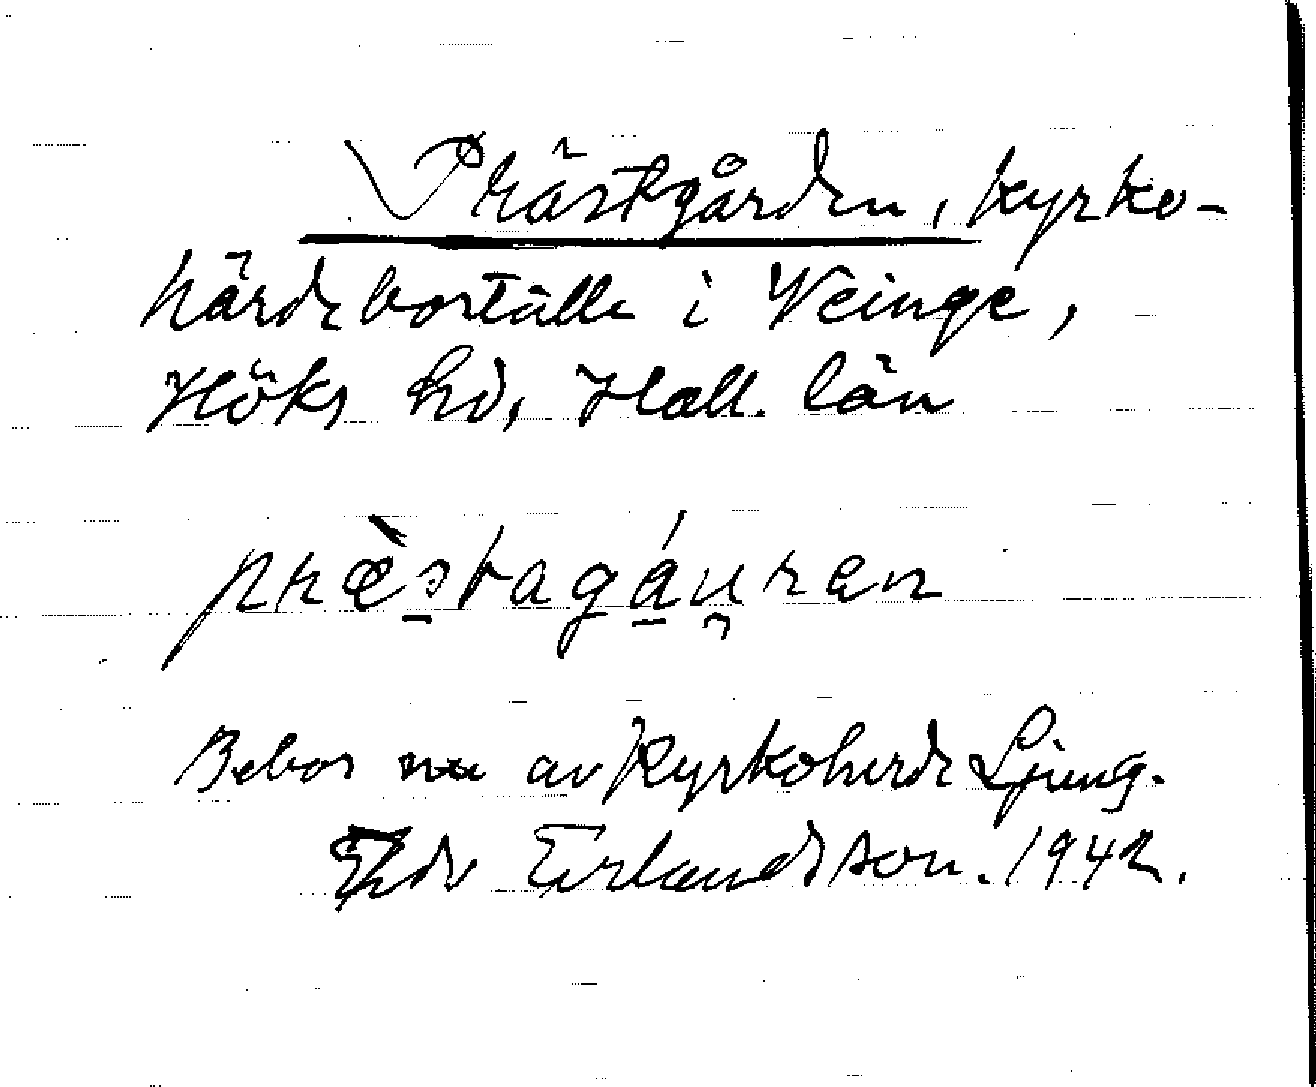 Prästgården, kyrko-
härdeboställe i Veinge,
Höks hd, Hall. län
præ̀stagáu̯ren
Bebos nu av Kyrkoherde Ljung.
Edv Erlandsson. 1942.